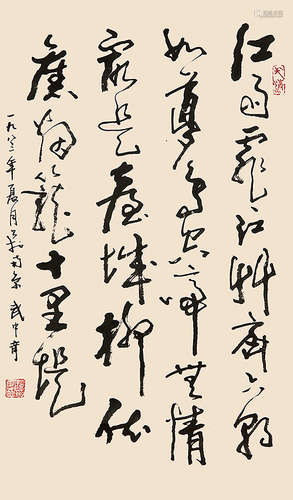 江雨霏霏江艸齊六朝
如夢鳥空啼無情
最是臺城柳依
舊烟籠十里堤
一九八三年夏月於南京 武中奇